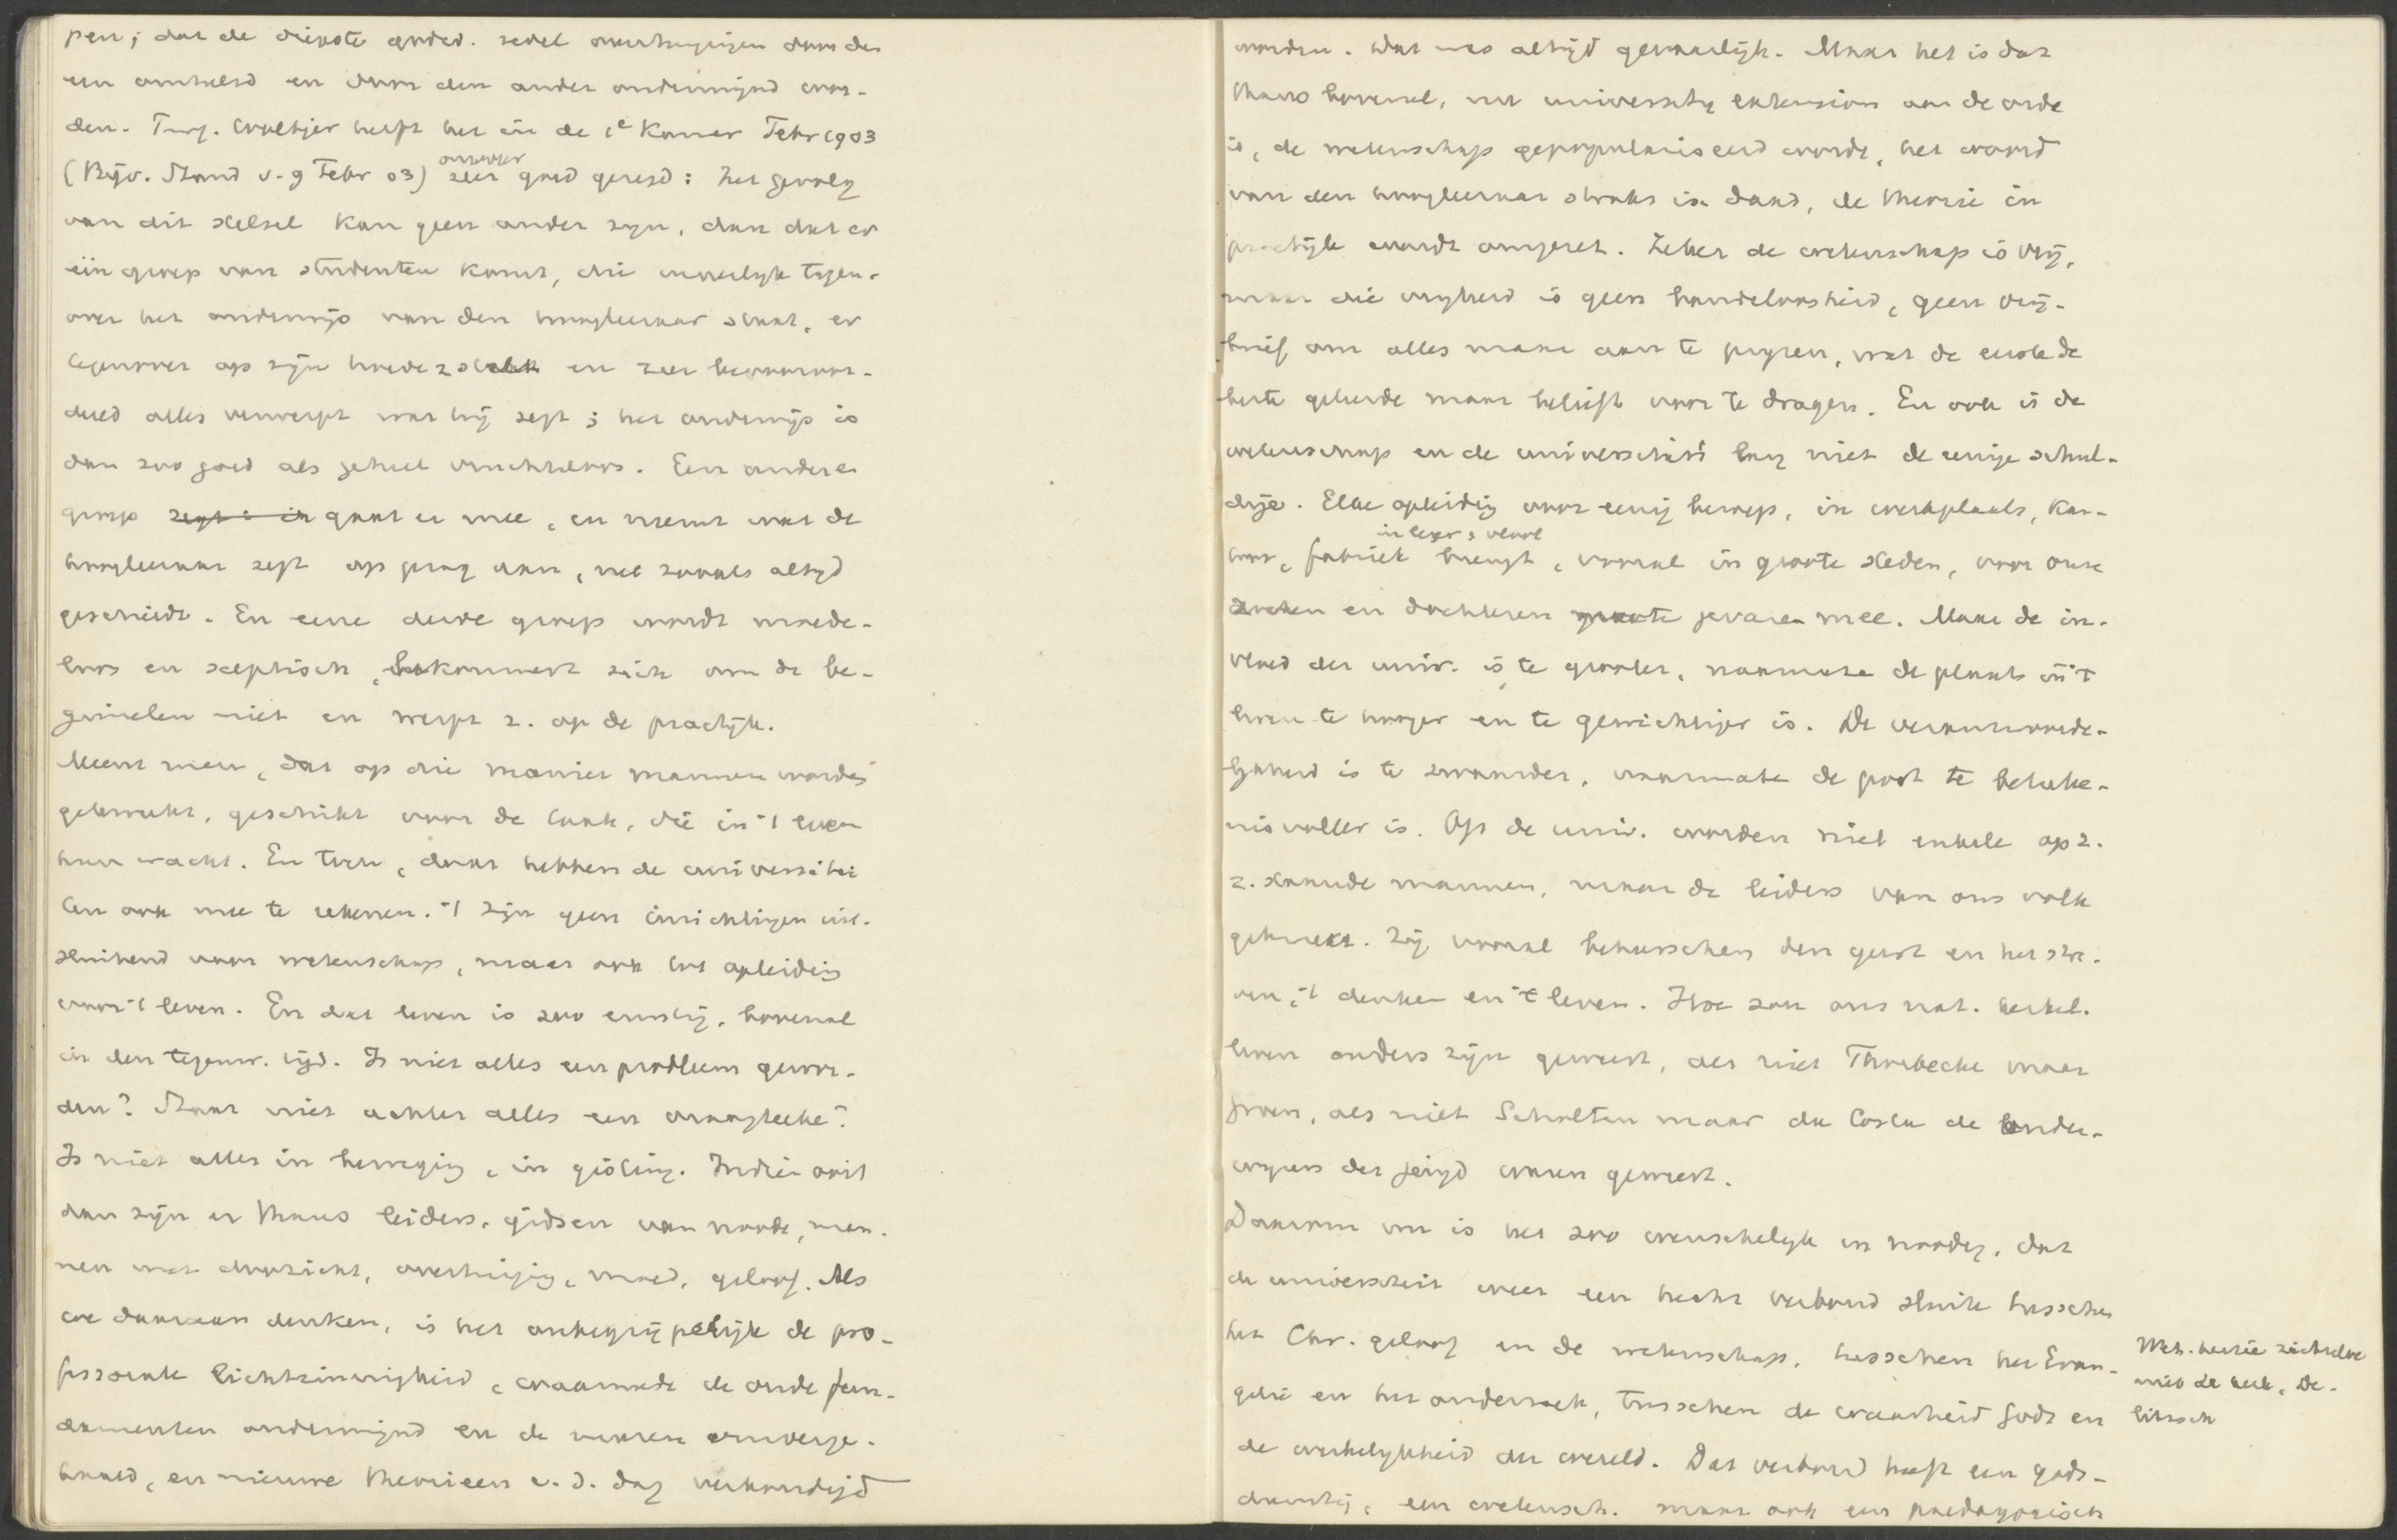 pen; dat de diepste godsd. zedel overtuigingen door den
een omhelsd en door den ander ondermijnd wor-
den. Prof. Woltjer heeft het in de 1e Kamer Febr 1903
(Bijv. Stand v. 9 Febr 03) onlangs zeer goed gezegd: het gevolg
van dit stelsel kan geen ander zijn, dan dat er
een groep van studenten komt, die vijandelijk tegen-
over het onderwijs van den hoogleeraar staat, er
tegenover op zijn hoede is en zeer bevooroor-
deeld alles verwerpt wat hij zegt; het onderwijs is
dan zoo goed als geheel vruchteloos. Een andere
groep gaat er mee, en neemt wat de
hoogleeraar zegt op gezag aan, net zooals altijd
geschiedt. En eene derde groep wordt moede-
loos en sceptisch, bekommert zich om de be-
ginselen niet en werpt z. op de practijk.
Meent men, dat op die manier mannen worden
gekweekt, geschikt voor de taak, die in 't leven
hun wacht. En toch, daar hebben de universitei
ten ook mee te rekenen. 't Zijn geen inrichtingen uit-
sluitend voor wetenschap, maar ook tot opleiding
voor 't leven. En dat leven is zoo ernstig, bovenal
in den tegenw. tijd. Is niet alles een probleem gewor-
den? Staat niet achter alles een vraagteeken?
Is niet alles in beweging, in gisting. Indien ooit
dan zijn er thans leiders, gidsen van noode, man-
nen met doorzicht, overtuiging, moed, geloof. Als
we daaraan denken, is het onbegrijpelijk de pro-
fessorale lichtzinnigheid, waarmede de oude fun-
damenten ondermijnd en de muren omverge-
haald, en nieuwe theorieen v. d. dag verkondigd
worden. Dat was altijd gevaarlijk. Maar het is dat
thans bovenal, nu university extension aan de orde
is, de wetenschap gepopulariseerd wordt, het woord
van den hoogleeraar straks in daad, de theorie in
practijk wordt omgezet. Zeker de wetenschap is vrij,
maar die vrijheid is geen bandeloosheid, geen vrij-
brief om alles maar aan te prijzen, wat de eerste de
beste geleerde maar belieft voor te dragen. En ook is de
wetenschap en de universiteit lang niet de eenige schul-
dige. Elke opleiding voor eenig beroep, in werkplaats, kan-
toor, fabriek in leger, vloot brengt, vooral in groote steden, voor onze
zonen en dochteren groote gevaren mee. Maar de in-
vloed der univ. is te grooter, naarmate de plaats in 't
leven te hooger en te gewichtiger is. De verantwoorde-
lijkheid is te zwaarder, naarmate de post te beteeke-
nisvoller is. Op de univ. worden niet enkele op z.
z. staande mannen, maar de leiders van ons volk
gekweekt. Zij vooral beheerschen den geest en het stre-
ven, 't denken en 't leven. Hoe zou ons nat. kerkel.
leven anders zijn geweest, als niet Thorbecke maar
Groen, als niet Scholten maar da Costa de onder-
wijzers der jeugd waren geweest.
Daarom nu is het zoo wenschelijk en noodig, dat
de universiteit weer een hecht verbond sluite tusschen
het Chr. geloof en de wetenschap, tusschen het Evan-
gelie en het onderzoek, tusschen de waarheid Gods en
de werkelijkheid der wereld. Dat verbond heeft een gods-
dienstig, een wetensch. maar ook een paedagogisch
Wet. theorie zichzelve
niet de kerk, De-
litzsch